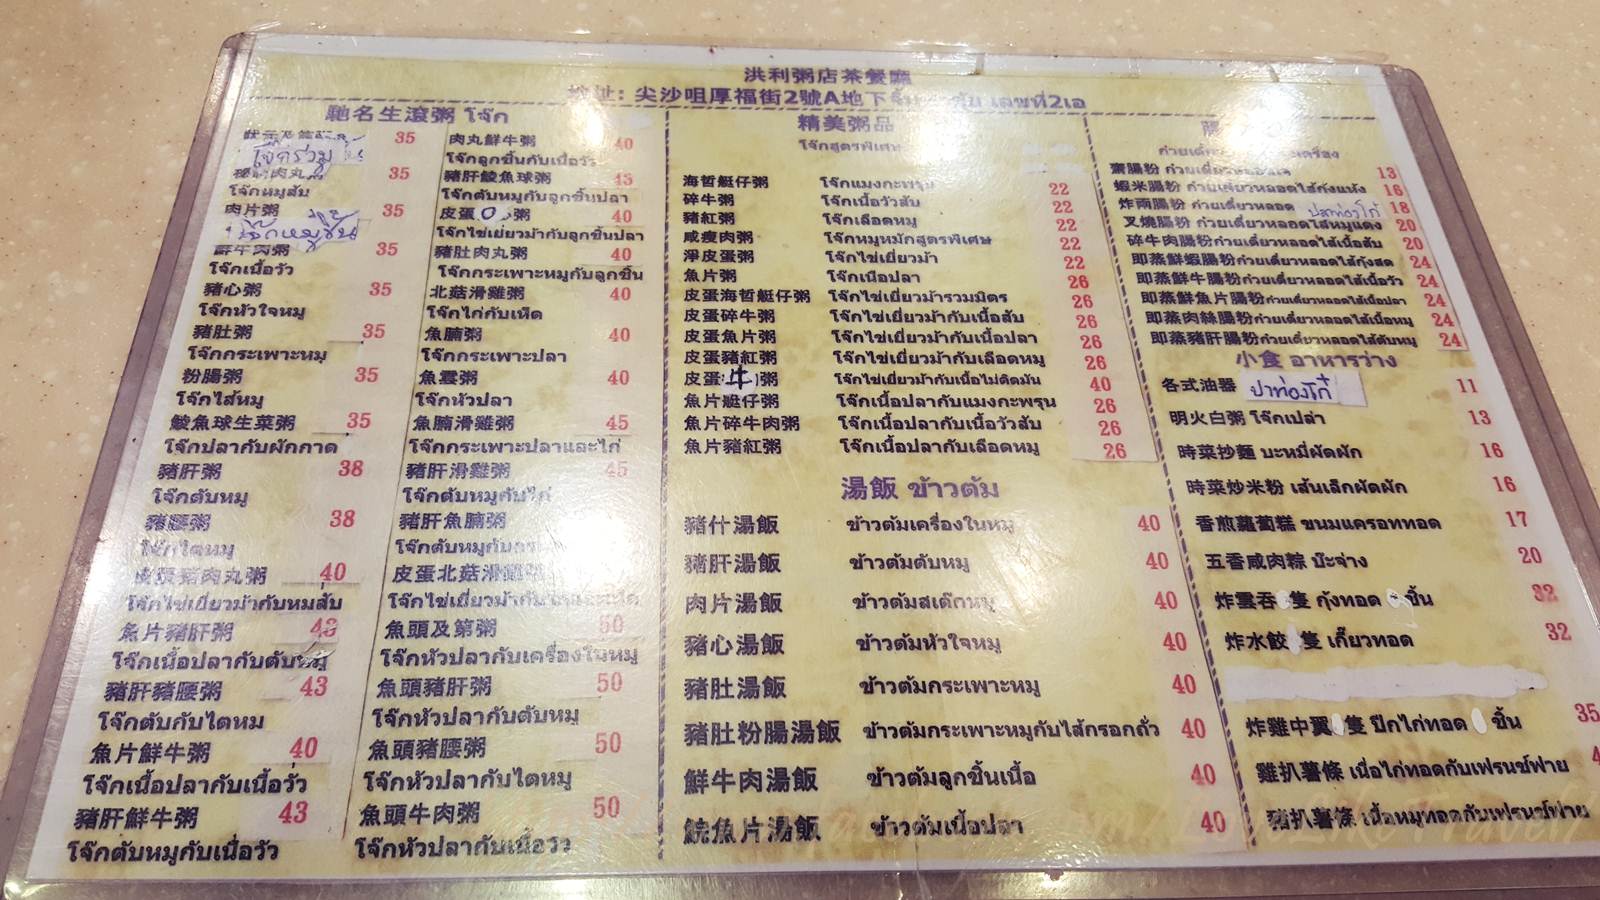 洪利粥店茶餐廳
地址: 尖沙咀厚福街2號A地下 เลขที่2เอ
馳名生滾粥 โจ๊ก
35
โจ๊กรวม
肉丸粥 35
โจ๊กหมูสับ
肉片粥 35
โจ๊กหมูชิ้น
鮮牛肉粥 35
โจ๊กเนื้อวัว
豬心粥 35
โจ๊กหัวใจหมู
豬肚粥 35
โจ๊กกระเพาะหมู
粉腸粥 35
โจ๊กไส้หมู
鯪魚球生菜粥 35
โจ๊กปลากับผักกาด
豬肝粥 38
โจ๊กตับหมู
豬腰粥 38
โจ๊กไตหมู
皮蛋豬肉丸粥 40
โจ๊กไข่เยี่ยวม้ากับหมูสับ
魚片豬肝粥 43
โจ๊กเนื้อปลากับตับหมู
豬肝豬腰粥 43
โจ๊กตับกับไตหม
魚片鮮牛粥 40
โจ๊กเนื้อปลากับเนื้อวัว
豬肝鮮牛粥 43
โจ๊กตับหมูกับเนื้อวัว
肉丸鮮牛粥 40
โจ๊กลูกชิ้นกับเนื้อวัว
豬肝鯪魚球粥 43
โจ๊กตับหมูกับลูกชิ้นปลา
皮蛋 粥 40
โจ๊กไข่เยี่ยวม้ากับลูกชิ้นปลา
豬肚肉丸粥 40
โจ๊กกระเพาะหมูกับลูกชิ้น
北菇滑雞粥 40
โจ๊กไก่กับเห็ด
魚腩粥 40
โจ๊กกระเพาะปลา
魚雲粥 40
โจ๊กหัวปลา
魚腩滑雞粥 45
โจ๊กกระเพาะปลาและไก่
豬肝滑雞粥 45
โจ๊กตับหมูกับไก่
豬肝魚腩粥
โจ๊กตับหมูกับ
皮蛋北菇滑雞
โจ๊กไข่เยี่ยวม้ากับ
魚頭及第粥 50
โจ๊กหัวปลากับเครื่องในหมู
魚頭豬肝粥 50
โจ๊กหัวปลากับตับหมู
魚頭豬腰粥 50
โจ๊กหัวปลากับไตหมู
魚頭牛肉粥 50
โจ๊กหัวปลากับเนื้อวัว
精美粥品
โจ๊กสูตรพิเศษ
海哲艇仔粥 โจ๊กแมงกะพรุน 22
碎牛粥 โจ๊กเนื้อวัวสับ 22
豬紅粥 โจ๊กเลือดหมู 22
咸瘦肉粥 โจ๊กหมูหมักสูตรพิเศษ 22
淨皮蛋粥 โจ๊กไข่เยี่ยวม้า 22
魚片粥 โจ๊กเนื้อปลา 26
皮蛋海哲艇仔粥 โจ๊กไข่เยี่ยวม้ารวมมิตร 26
皮蛋碎牛粥 โจ๊กไข่เยี่ยวม้ากับเนื้อสับ 26
皮蛋魚片粥 โจ๊กไข่เยี่ยวม้ากับเนื้อปลา 26
皮蛋豬紅粥 โจ๊กไข่เยี่ยวม้ากับเลือดหมู 26
皮蛋牛粥 โจ๊กไข่เยี่ยวม้ากับเนื้อไม่ติดมัน 40
魚片艇仔粥 โจ๊กเนื้อปลากับแมงกะพรุน 26
魚片碎牛肉粥 โจ๊กเนื้อปลากับเนื้อวัวสับ 26
魚片豬紅粥 โจ๊กเนื้อปลากับเลือดหมู 26
湯飯 ข้าวต้ม
豬什湯飯 ข้าวต้มเครื่องในหมู 40
豬肝湯飯 ข้าวต้มตับหมู 40
肉片湯飯 ข้าวต้มสเต๊กหมู 40
豬心湯飯 ข้าวต้มหัวใจหมู 40
豬肚湯飯 ข้าวต้มกระเพาะหมู 40
豬肚粉腸湯飯 ข้าวต้มกระเพาะหมูกับไส้กรอกถั่ว 40
鮮牛肉湯飯 ข้าวต้มลูกชิ้นเนื้อ 40
鯇魚片湯飯 ข้าวต้มเนื้อปลา 40
齋腸粉 13
蝦米腸粉 ก๋วยเตี๋ยวหลอดไส้กุ้งแห้ง 16
炸兩腸粉 ก๋วยเตี๋ยวหลอด ปลาท่องโก๋ 18
叉燒腸粉 ก๋วยเตี๋ยวหลอดไส้หมูแดง 20
碎牛肉腸粉ก๋วยเตี๋ยวหลอดไส้เนื้อสับ 20
即蒸鮮蝦腸粉ก๋วยเตี๋ยวหลอดไส้กุ้งสด 24
即蒸鮮牛腸粉ก๋วยเตี๋ยวหลอดไส้เนื้อวัว 24
即蒸鮮魚片腸粉ก๋วยเตี๋ยวหลอดไส้เนื้อปลา 24
即蒸肉絲腸粉ก๋วยเตี๋ยวหลอดไส้เนื้อหมู 24
即蒸豬肝腸粉ก๋วยเตี๋ยวหลอดไส้ตับหมู 24
小食 อาหารว่าง
各式油器 ปาท่องโก๋ 11
明火白粥 โจ๊กเปล่า 13
時菜抄麵 บะหมี่ผัดผัก 16
時菜炒米粉 เส้นเล็กผัดผัก 16
香煎蘿蔔糕 ขนมแครอททอด 17
五香咸肉粽 บ๊ะจ่าง 20
炸雲吞 隻 กุ้งทอด ชิ้น 32
炸水餃 隻 เกี๊ยวทอด 32
炸雞中翼 隻 ปีกไก่ทอด ชิ้น 35
雞扒薯條 เนื้อไก่ทอดกับเฟรนช์ฟาย
豬扒薯條 เนื้อหมูทอดกับเฟรนช์ฟาย